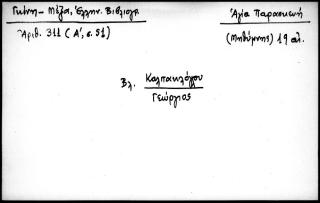 Γκίνη - Μέξα, Ἑλλην. Βιβλιογρ.
Ἀριθ. 311 (Α', σ. 51)
Ἁγία Παρασκευή
(Μηθύμνης) 19 αἰ.
Βλ. Καλπακλόγλου
Γεώργιος